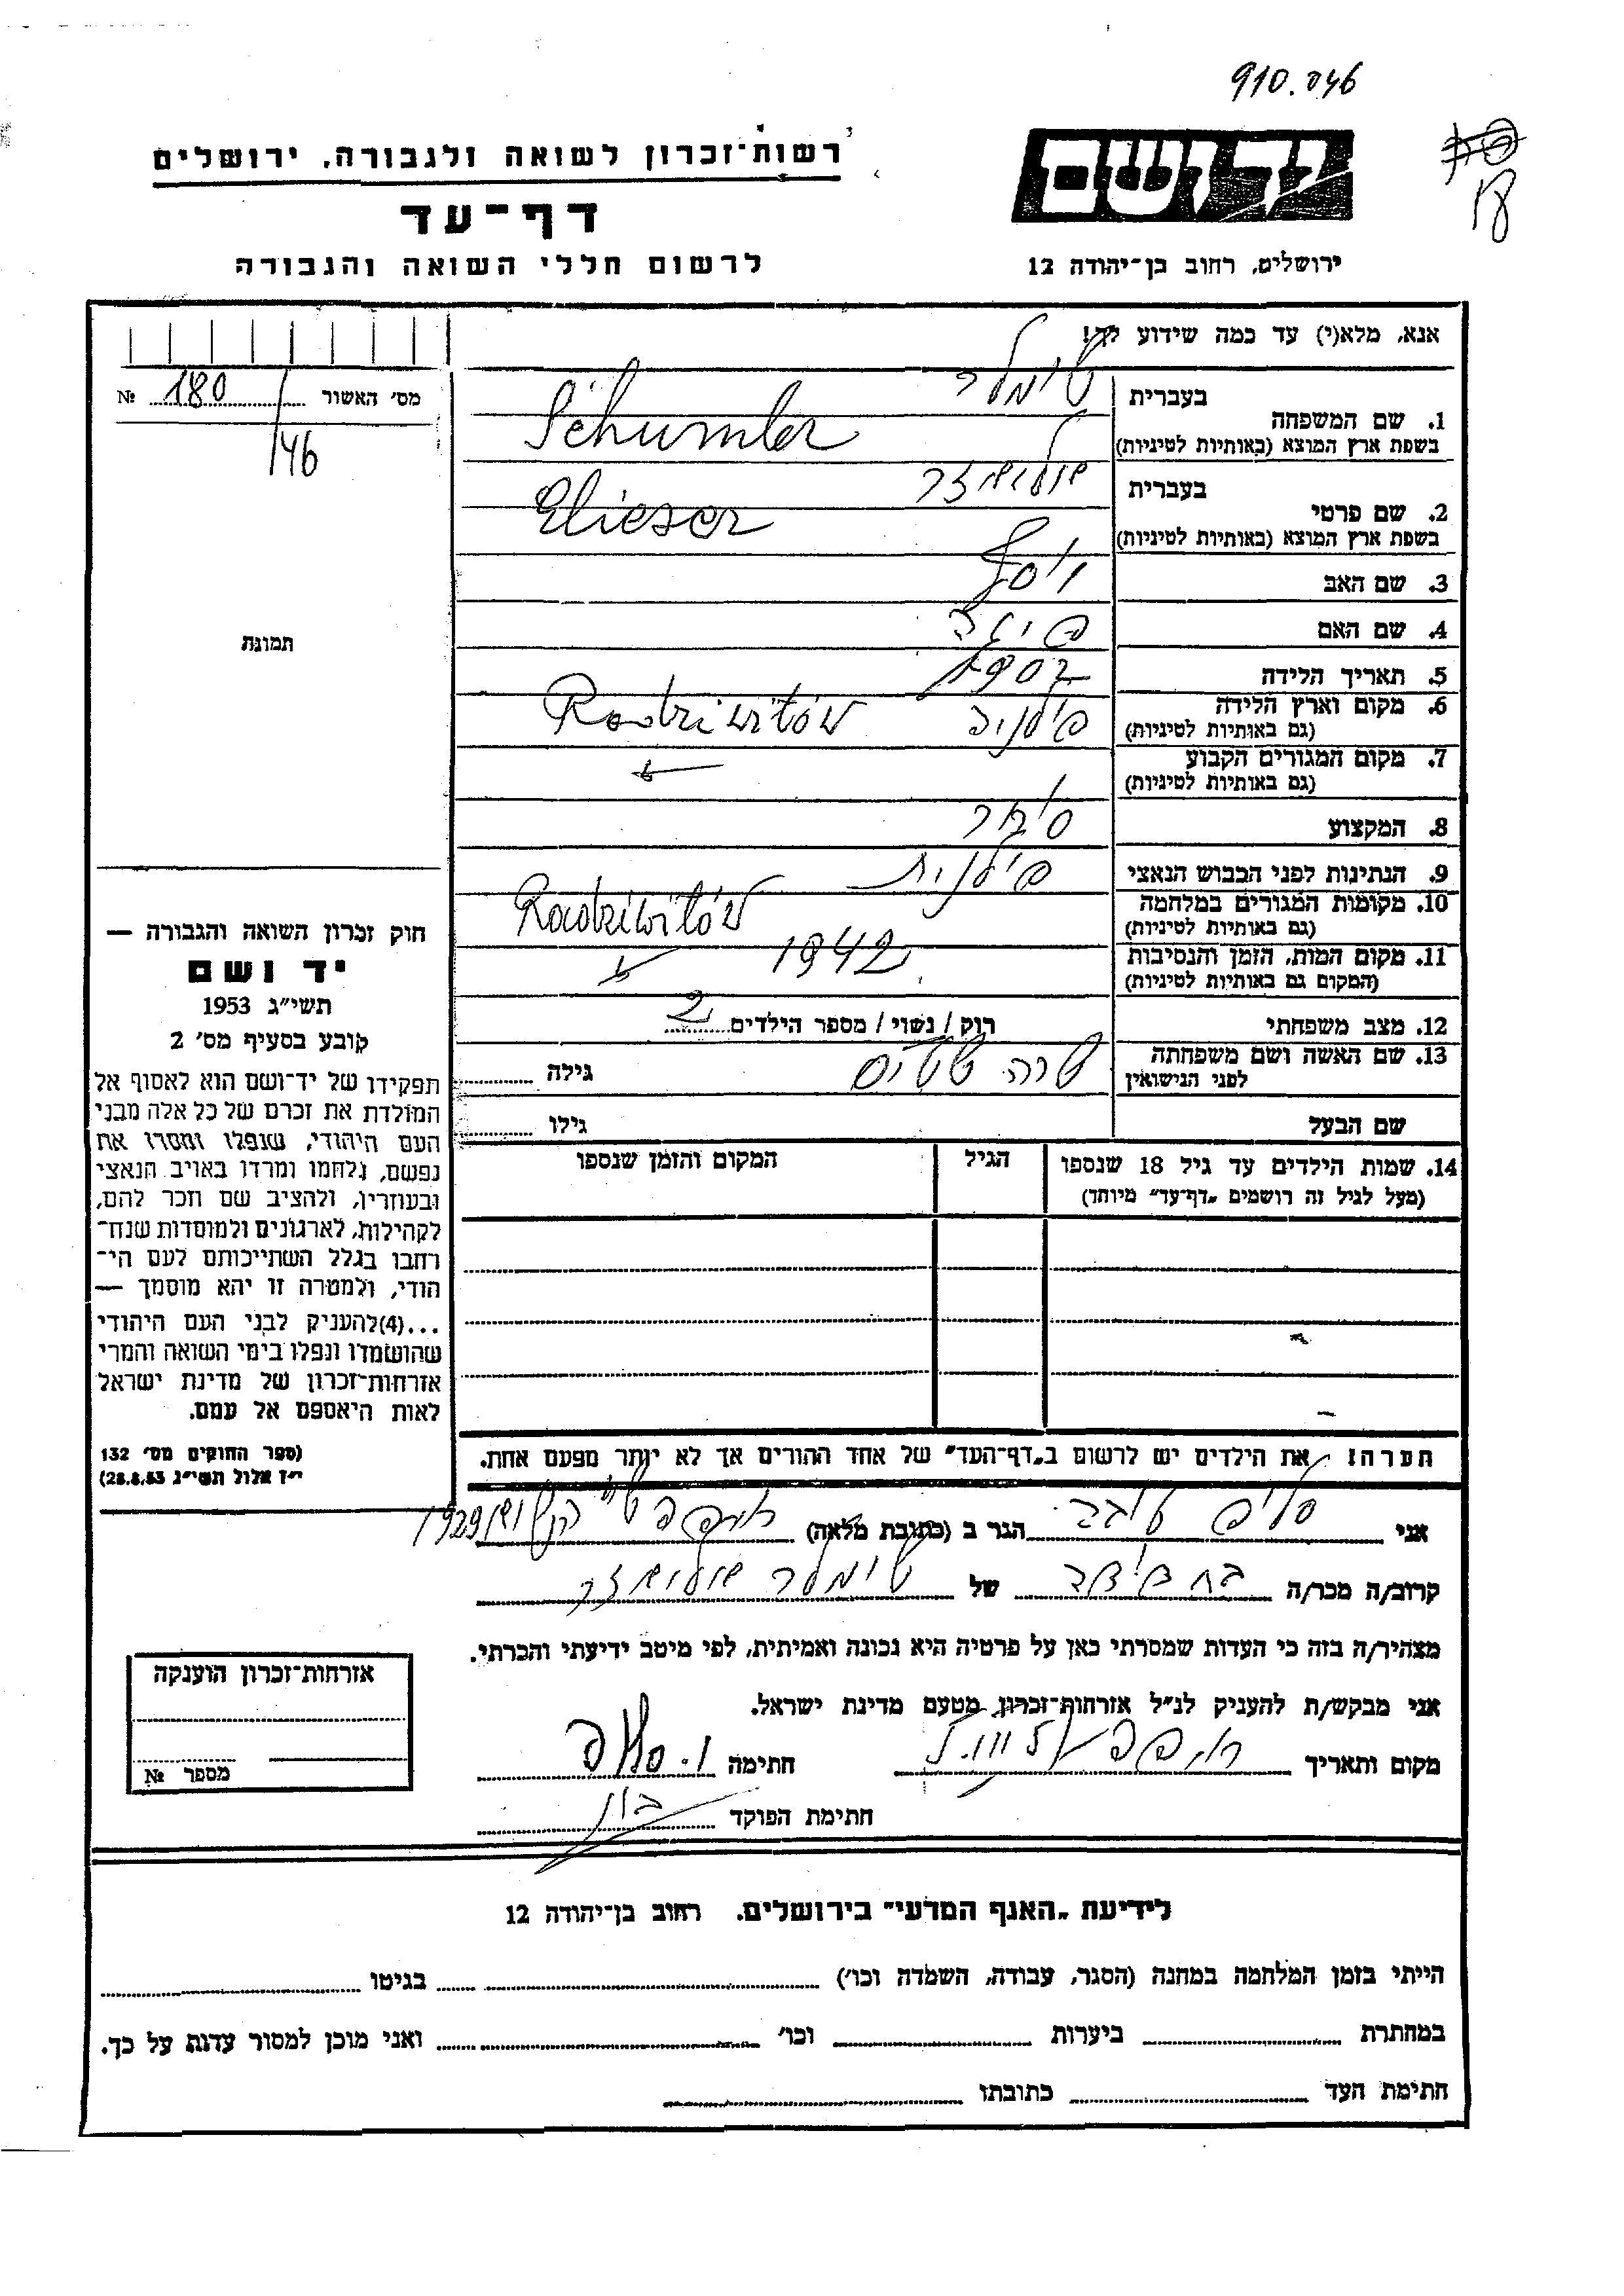 910.046
18
יד ושם
ירושלים, רחוב בן-יהודה 12
רשות-זכרון לשואה ולגבורה, ירושלים
דף-עד
לרשום חללי השואה והגבורה
אנא, מלא(י) עד כמה שידוע לך!
מס' האשור 180 №
/46
תמונה
1. שם המשפחה בעברית שימלר
בשפת ארץ המוצא (באותיות לטיניות) Schumler
2. שם פרטי בעברית
בשפת ארץ המוצא (באותיות לטיניות) Elieser
3. שם האב יוסף
4. שם האם פיגה
5. תאריך הלידה 1902
6. מקום וארץ הלידה פולניה Radziwiłów
(גם באותיות לטיניות)
7. מקום המגורים הקבוע
(גם באותיות לטיניות)
8. המקצוע
9. הנתינות לפני הכבוש הנאצי פולנית
10. מקומות המגורים במלחמה Radziwiłów
(גם באותיות לטיניות)
11. מקום המות, הזמן והנסיבות 1942
(המקום גם באותיות לטיניות)
12. מצב משפחתי רוק / נשוי / מספר הילדים 2
13. שם האשה ושם משפחתה שרה גילה
לפני הנישואין
שם הבעל גילו
14. שמות הילדים עד גיל 18 שנספו הגיל המקום והזמן שנספו
(מעל לגיל זה רושמים „דף-עד" מיוחד)
הערה: את הילדים יש לרשום ב„דף-העד" של אחד ההורים אך לא יותר מפעם אחת.
חוק זכרון השואה והגבורה —
יד ושם
תשי"ג 1953
קובע בסעיף מס' 2
תפקידו של יד-ושם הוא לאסוף אל
המולדת את זכרם של כל אלה מבני
העם היהודי, שנפלו ומסרו את
נפשם, נלחמו ומרדו באויב הנאצי
ובעוזריו, ולהציב שם וזכר להם,
לקהילות, לארגונים ולמוסדות שנח-
רבו בגלל השתייכותם לעם הי-
הודי, ולמטרה זו יהא מוסמך —
...(4)להעניק לבני העם היהודי
שהושמדו ונפלו בימי השואה והמרי
אזרחות-זכרון של מדינת ישראל
לאות היאספם אל עמם.
(ספר החוקים מס' 132
י"ז אלול תשי"ג 28.8.53)
אני הגר ב (כתובת מלאה) 1929
קרוב/ה מכר/ה של שימלר
מצהיר/ה בזה כי העדות שמסרתי כאן על פרטיה היא נכונה ואמיתית, לפי מיטב ידיעתי והכרתי.
אני מבקש/ת להעניק לנ"ל אזרחות-זכרון מטעם מדינת ישראל.
מקום ותאריך חתימה
חתימת הפוקד
אזרחות-זכרון הוענקה
מספר №
לידיעת „האגף המדעי" בירושלים. רחוב בן-יהודה 12
הייתי בזמן המלחמה במחנה (הסגר, עבודה, השמדה וכו') בגיטו
במחתרת ביערות וכו' ואני מוכן למסור עדות על כך.
חתימת העד כתובתו